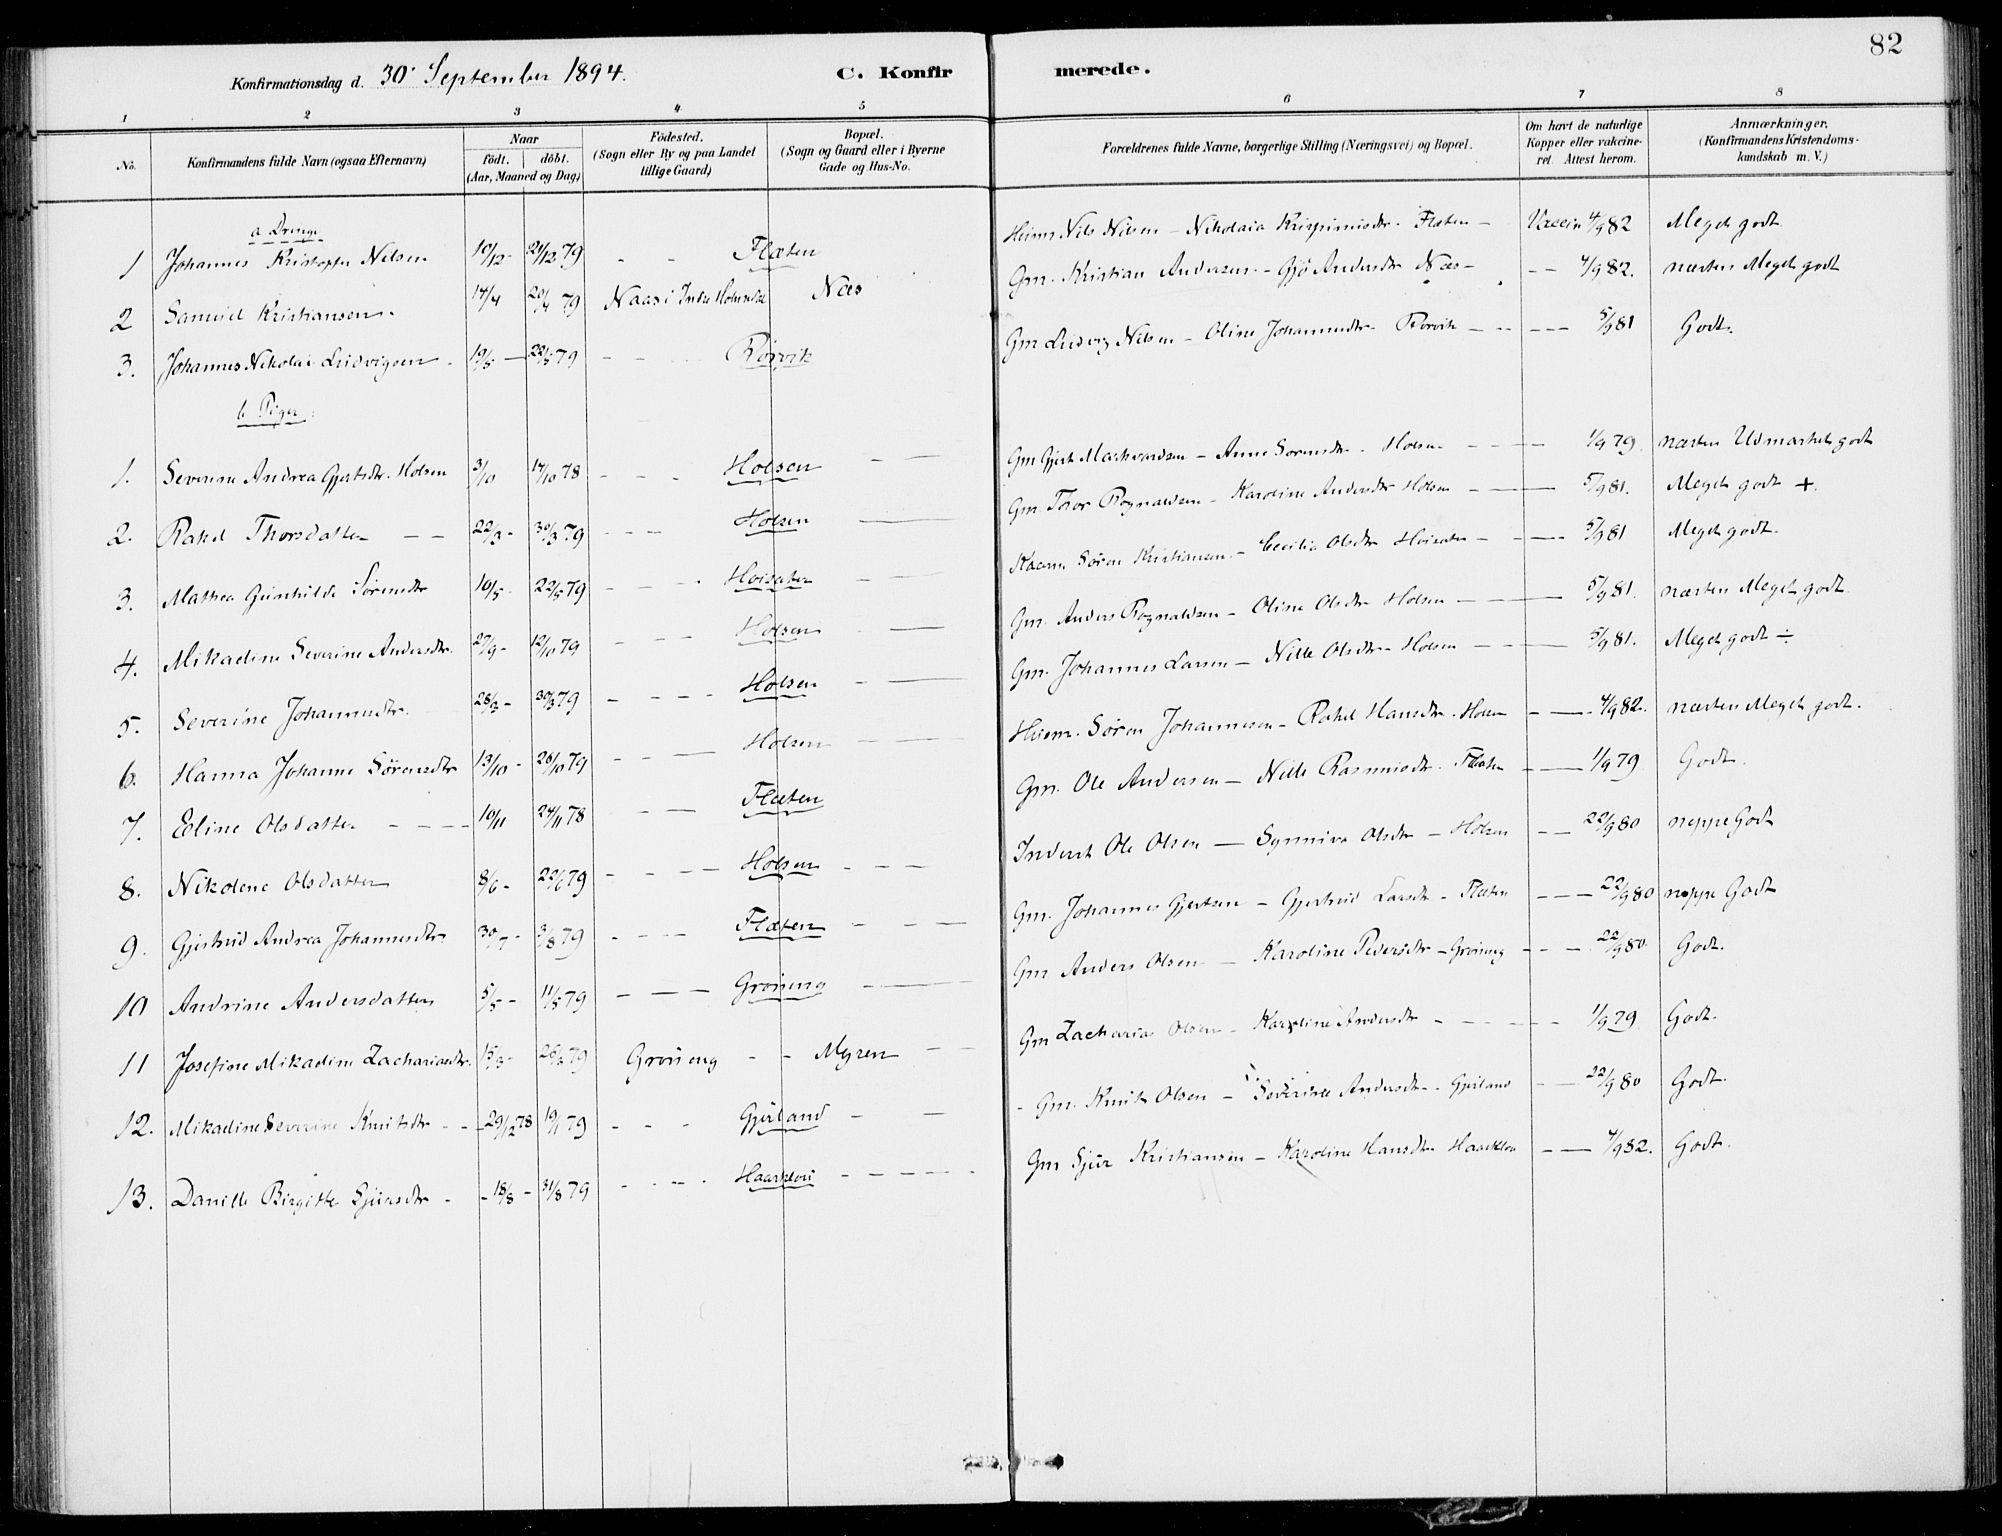 82
Konfirmationsdag d. 30' September 1894.
C. Konfir merede.
1 2 3 4 5 6 7 8
No.
Konfirmandens fulde Navn (ogsaa Efternavn)
Naar
födt. döbt.
(Aar, Maaned og Dag)
Födested.
(Sogn eller By og paa Landet
tillige Gaard)
Bopæl.
(Sogn og Gaard eller i Byerne
Gade og Hus-No.
Forældrenes fulde Navne, borgerlige Stilling (Næringsvei) og Bopæl.
Om havt de naturlige
Kopper eller vakcine-
ret. Attest herom.
Anmærkninger,
(Konfirmandens Kristendoms-
kundskab m. V.)
a Drenge
1 Johannes Kristoffer Nilsen 10/12 - 21/12 79 - - Flæten Nils Nilsen - Nikolaia Krispinusdtr. Flæten - Vaccin 4/9 82 Meget godt
2 Samuel Kristiansen. 14/4 20/4 79 Naas i Indre Holmedal Næs Gm. Kristian Andersen - Gjø Andersdtr Næs - - - 4/9 82. næsten Meget godt
3. Johannes Nikolai Ludvigsen - 19/5 - 22/5 79 - - - Rörvik Gm Ludvig Nilsen - Oline Johannesdtr - Rörvik - - - - 5/9 81 Godt.
b Piger:
1. Severine Andrea Gjertsdtr. Holsen 3/10 17/10 78 - - - Holsen - - Gm Gjert Markvardsen - Anne Sørensdtr - Holsen - - - 1/9 79. næsten Udmærket godt
2. Rakel Thorsdatter - - 22/3 - 30/3 79 - - - Holsen - Gm. Thor Rognaldsen - Karoline Andersdtr Holsen - - - 5/9 81. Meget godt +.
3. Mathea Gunhilda Sørensdtr 10/5 - 22/5 79 - - - - Høisæter - - Søren Kristiansen - Cecilia Olsdtr Høisæter - - - 5/9 81 Meget godt.
4. Mikaeline Severine Andersdtr. 27/9 - 12/10 79 - - - Holsen - - Gm. Anders Rognaldsen - Oline Olsdtr Holsen - - - 5/9 81. næsten Meget godt.
5. Severine Johannesdtr. 28/3 - 30/3 79 - - - - Holsen - - Gm. Johannes Larsen - Nille Olsdtr - Holsen - - - 5/9 81. Meget godt ÷
6. Hanna Johanne Sørensdtr 13/10 - 26/10 79 - - - Holsen - - Søren Johannesen - Rakel Hansdtr. Holsen - - 4/9 82. næsten Meget godt.
7. Eline Olsdatter - - - 10/11 24/11 78 - - Flæten Gm. Ole Andersen - Nille Rasmusdtr. Flæten - - 1/9 79 Godt.
8. Nikoline Olsdatter 8/6 - 22/6 79 - - - - Holsen - - - Inderst Ole Olsen - Synniva Olsdtr - Holsen - - 22/9 80 neppe Godt
9. Gjertrud Andrea Johannesdtr. 30/7 - 3/8 79 - - - Flæten - - - Gm. Johannes Gjertsen - Gjertrud Larsdtr - Flæten - - - 22/9 80 neppe Godt
10 Andrine Andersdatter 5/5 - 11/5 79 - - - Grøneng - - Gm Anders Olsen - Karoline Pedersdtr - Grøneng - - - 22/9 80. Godt.
11 Josefine Mikaeline Zachariasdtr. 15/3 - 26/3 79 Grøneng - - Myren - - Gm Zacharias Olsen - Karoline Andersdtr - - - - 1/9 79. Godt.
12. Mikaeline Severine Knutsdtr - - 29/12 78 19/1 79 - - - Gjerland - - Gm. Knut Olsen - Severine Andersdtr - Gjerland - - 22/9 80 Godt.
13. Danille Birgitte Sjursdtr - - 18/8 - 31/8 79 - - - - Haarklou - - - - - Gm Sjur Kristiansen - Karoline Hansdtr Haarklou - - 4/9 82. Godt.